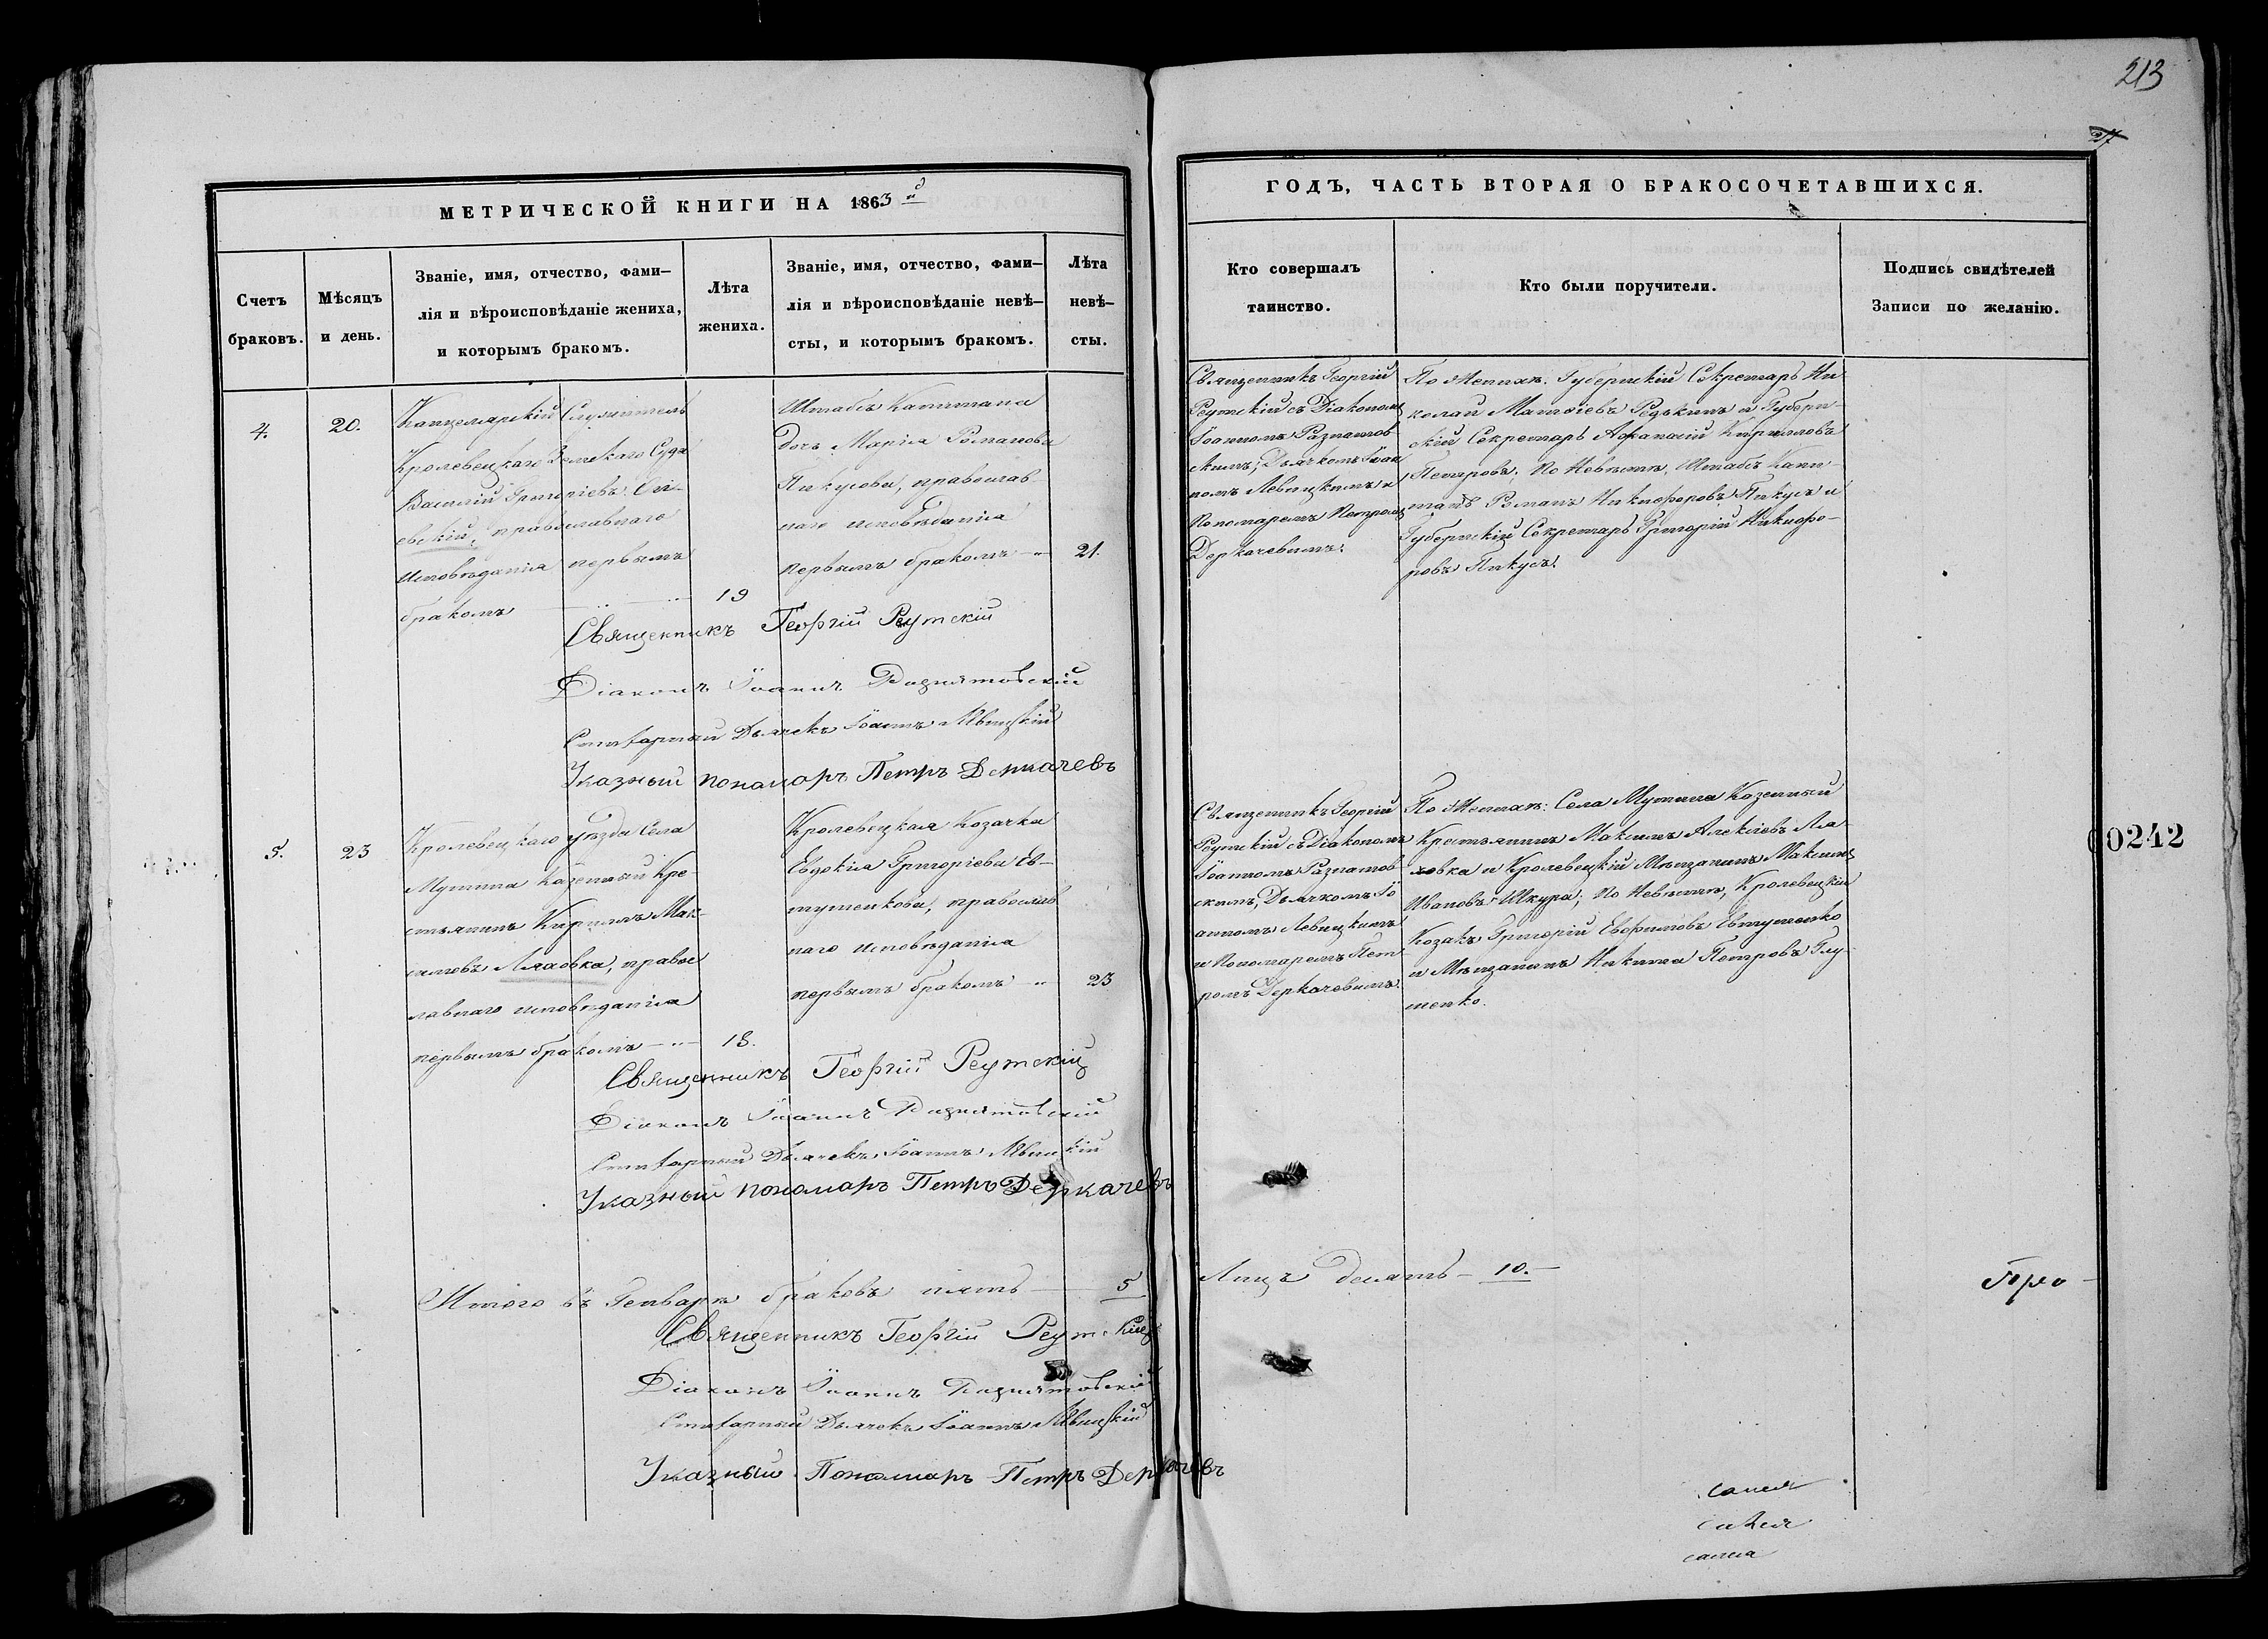 213
МЕТРИЧЕСКОЙ КНИГИ НА 1863 й
ГОДЪ, ЧАСТЬ ВТОРАЯ О БРАКОСОЧЕТАВШИХСЯ.
Счетъ
браковъ.
Мѣсяцъ
и день.
Званіе, имя, отчество, фами-
лія и вѣроисповѣданіе жениха,
и которымъ бракомъ.
Лѣта
жениха.
Званіе, имя, отчество, фами-
лія и вѣроисповѣданіе невѣ-
сты, и которымъ бракомъ.
Лѣта
невѣ-
сты.
Кто совершалъ
таинство.
Кто были поручители.
Подпись свидѣтелей
Записи по желанію.
4.
20.
Канцелярскій Служитель
Кролевецкаго Земскаго Суда
Василій Григоріевъ
евскій, православнаго
исповѣданія первымъ
бракомъ
19
Штабсъ Капитана
дочь Марія Романова
Пикусова, православ
наго исповѣданія
первымъ бракомъ
21.
Священникъ Георгій
Реутскій съ Діакономъ
Іоанномъ Разнатов
скимъ; Дьячкомъ Іоан
номъ Левицкимъ и
Пономаремъ Петромъ
Деркачевимъ:
По Женихѣ: Губернскій Секретарь Ни-
колай Матвіевъ Редькинъ и Губерн-
скій Секретарь Афанасій Кириловъ
Петровъ; По Невѣстѣ, Штабсъ Капи-
танъ Романъ Никифоровъ Пикусъ и
Губернскій Секретарь Григорій Никифо-
ровъ Пикусъ.
Священникъ Георгій Реутскій
Діаконъ Іоаннъ Разнятовскій
Статарный Дьячекъ Іоаннъ Левицкій
Указный пономарь Петръ Деркачевъ
5.
23
Кролевецкаго уѣзда Села
Мутина Казенный Кре-
стьянинъ Кирилъ Мак-
симовъ Ляховка, правос
лавнаго исповѣданія
первымъ бракомъ
18.
Кролевецкая Козачка
Евдокіа Григоріева Ев-
тушенкова, православ
наго исповѣданія
первымъ бракомъ
23
Священникъ Георгій
Реутскій съ Діакономъ
Іоанномъ Разнатов
скимъ, Дьячкомъ Іо
анномъ Левицкимъ
и Пономаремъ Пет
ромъ Деркачевимъ.
По Женихѣ: Села Мутина Казенный
Крестьянинъ Максимъ Алексіевъ Ля-
ховка и Кролевецкій Мѣщанинъ Максимъ
Ивановъ Шкура; По Невѣстѣ, Кролевецкій
Козакъ Григорій Евфимовъ Евтушенко
и Мѣщанинъ Никита Петровъ Глу-
шенко.
Священникъ Георгій Реутскій
Діаконъ Іоаннъ Разнятовскій
Статарный Дьячекъ Іоаннъ Левицкій
Указный пономарь Петръ Деркачевъ
00242
Итого въ Генварѣ браковъ пять — 5
Лицъ десять — 10. —
Священникъ Георгій Реутскій
Діаконъ Іоаннъ Разнятовскій
Статарный Дьячекъ Іоаннъ Левицкій
Указный Пономарь Петръ Деркачевъ